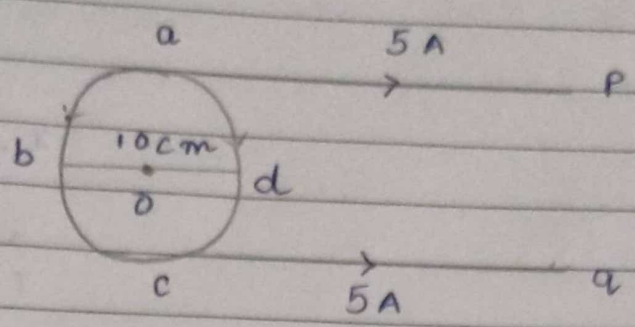 a
5 A
P
b
10cm
d
o
c
5A
q